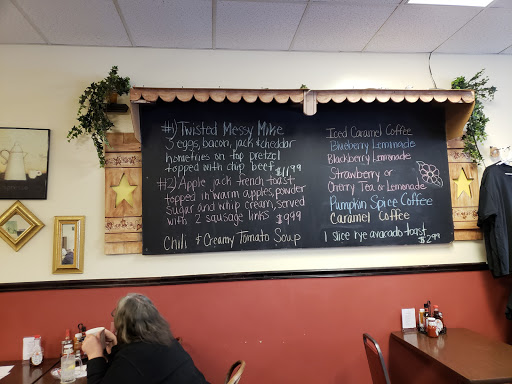 #1) Twisted Messy Mike
3 eggs, bacon, jack & cheddar
homefries on top pretzel
topped with chip beef $11.99
#2) Apple jack french toast
topped in warm apples, powder
sugar and whip cream, served
with 2 sausage links $9.99
Chili & Creamy Tomato Soup
Iced Caramel Coffee
Blueberry Lemonade
Blackberry Lemonade
Strawberry or
Cherry Tea or Lemonade
Pumpkin Spice Coffee
Caramel Coffee
1 slice rye avacado toast
$2.99